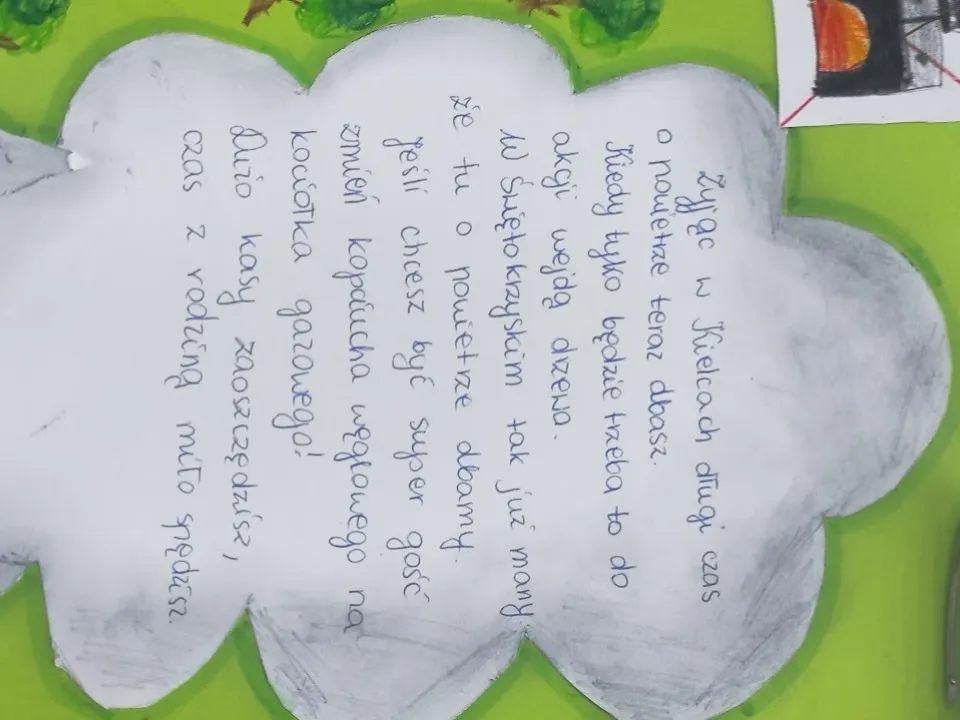 Żyjąc w Kielcach długi czas
o powietrze teraz dbasz.
Kiedy tylko będzie trzeba to do
akcji wejdą drzewa.
W Świętokrzyskim tak już mamy,
że tu o powietrze dbamy.
Jeśli chcesz być super gość
zmień kopciucha węglowego na
kociołka gazowego!
Dużo kasy zaoszczędzisz,
czas z rodziną miło spędzisz.